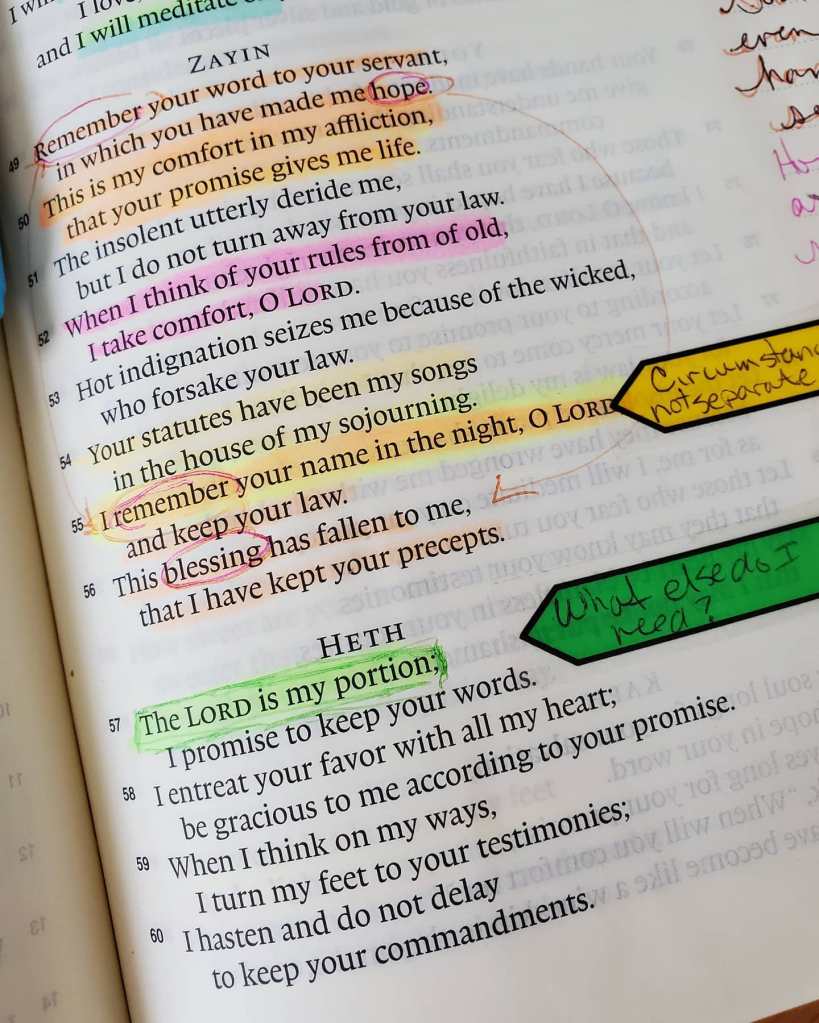 I love
and I will meditate
ZAYIN
49 Remember your word to your servant,
in which you have made me hope.
50 This is my comfort in my affliction,
that your promise gives me life.
51 The insolent utterly deride me,
but I do not turn away from your law.
52 When I think of your rules from of old,
I take comfort, O LORD.
53 Hot indignation seizes me because of the wicked,
who forsake your law.
54 Your statutes have been my songs
in the house of my sojourning.
55 I remember your name in the night, O LORD
and keep your law.
56 This blessing has fallen to me,
that I have kept your precepts.
HETH
57 The LORD is my portion;
I promise to keep your words.
58 I entreat your favor with all my heart;
be gracious to me according to your promise.
59 When I think on my ways,
I turn my feet to your testimonies;
60 I hasten and do not delay
to keep your commandments.
even
not separate
What else do I
need?